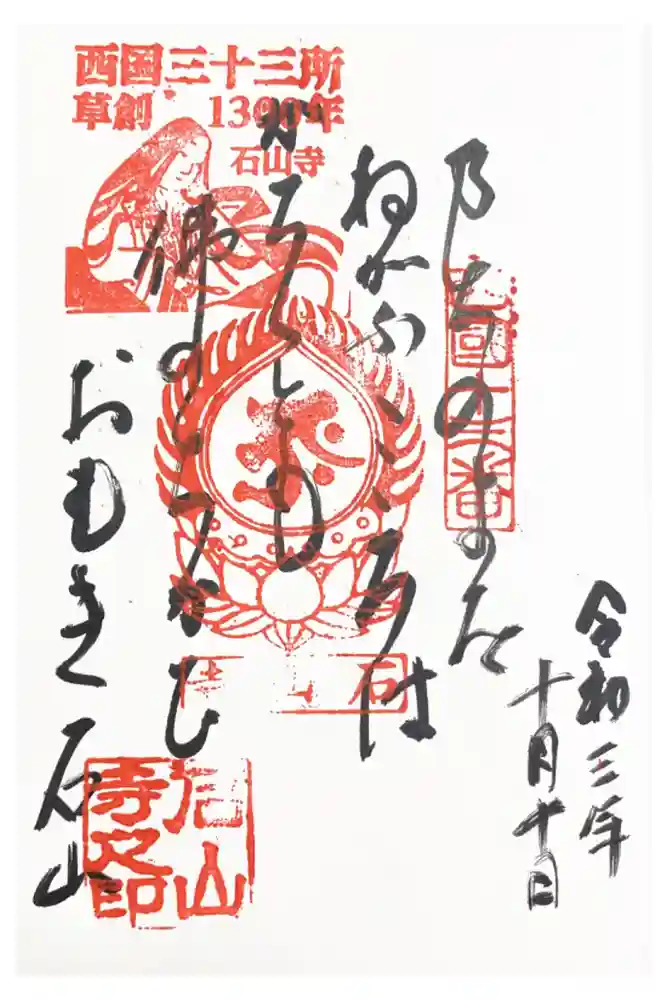 西国三十三所
草創 1300年
石山寺
令和三年
十月十日
乃ちのよを
ねかふこころは
かろくとも
佛のちかひ
おもき石山
國十三番
石山
寺之印